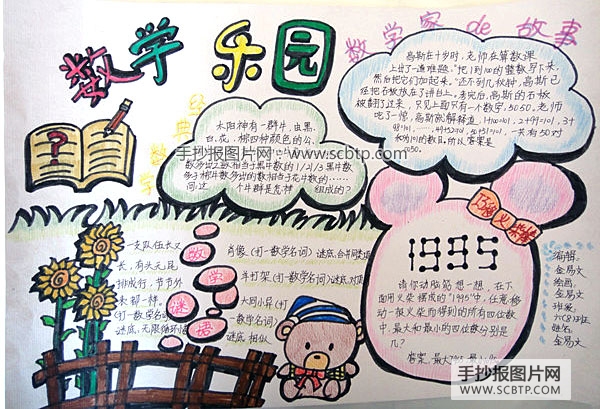 数学 乐园
数学家de故事
高斯在十岁时,老师在算数课
上出了一道难题:"把1到100的整数写下来,
然后把它们加起来。"还不到几秒钟,高斯已
经把石板放在了讲台上。考完后,高斯的石板
被翻了过来,只见上面只有一个数字:5050,老师
吃了一惊,高斯就解释道:1+100=101,2+99=101,3+
98=101,……,49+52=101,50+51=101,一共有50对
和为101的数目,所以答案是
5050。
经典
数学
太阳神有一群牛,由黑、
白、花、棕四种颜色的公、
手抄报图片网
www.scbtp.com
数多出之数相当于黑牛数的1/2+1/3黑牛数
多于棕牛数多出的数相当于花牛数的……
问这 个牛群是怎样 组成的?
数学
谜语
一支队伍长又
长,有头无尾
排成行,节节外
长都一样。
(打一数学名词)
谜底:无限循环小数
肖像(打一数学名词)谜底:合并同类项
羊打架(打一数学名词)谜底:对顶角
大同小异(打
一数学名词)
谜底:相似
巧移火柴棒
1995
请你动脑筋想一想,在下
面用火柴摆成的"1995"中,任意移
动一根火柴而得到的所有四位数
中,最大和最小的四位数分别是
几?
答案:最大7995
编辑:
金易文
绘画:
金易文
班级:
六(8)班
姓名:
金易文
手抄报图片网
WWW.SCBTP.COM